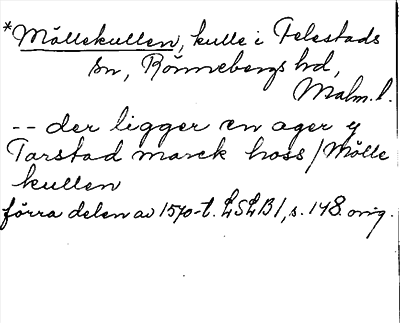 *Möllekullen, kulle i Felestads
sn, Rönnebergs hd,
Malm. l.
-- der ligger en ager y
Tarstad marck hoss / Mölle
kullen
förra delen av 1570-t. LSLB1, s. 148 orig.